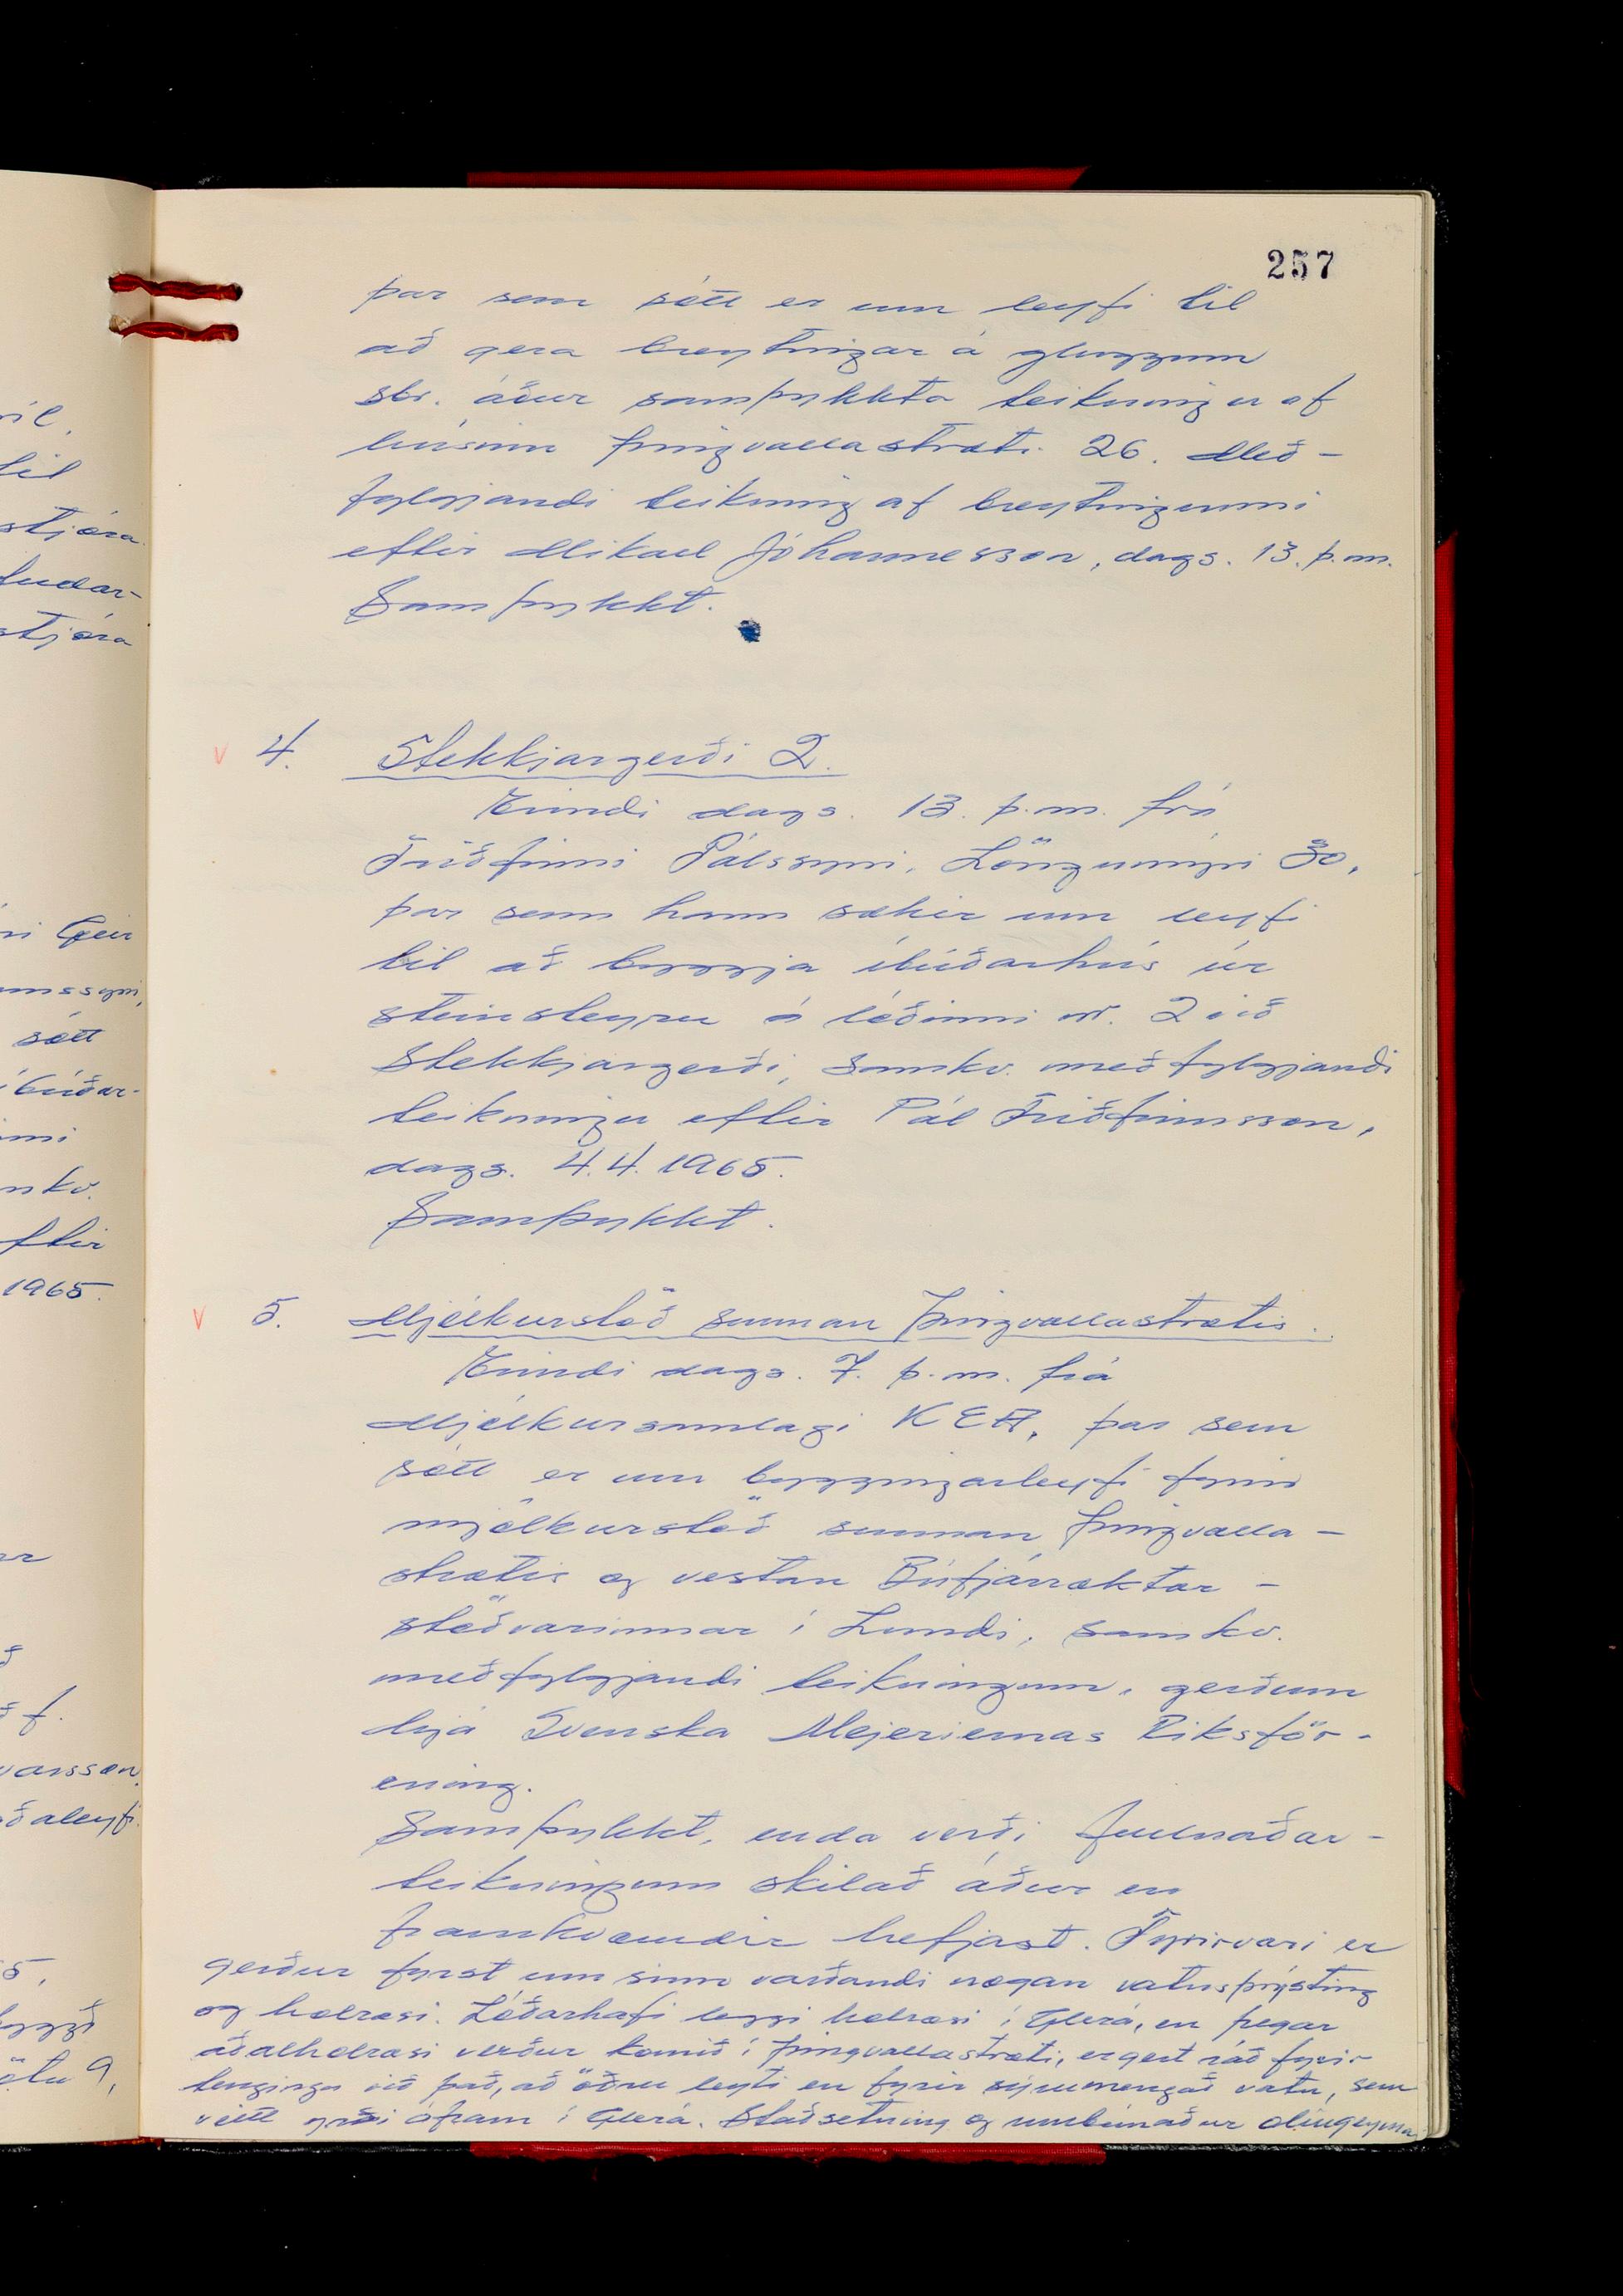 257
þar sem sótt er um leyfi til
að gera breytingar á gluggum
sbr. áður samþykkta teikningu af
húsinu Þingvallastræti 26. Með-
fylgjandi teikning af breytingunni
eftir Mikael Jóhannesson, dags. 13. þ.m.
Samþykkt.
v 4. Stekkjargerði 2.
Erindi dags. 13. þ.m. frá
Friðfinni Pálssyni, Löngumýri 30,
þar sem hann sækir um leyfi
til að byggja íbúðarhús úr
steinsteypu á lóðinni nr. 2 við
Stekkjargerði, samkv. meðfylgjandi
teikningu eftir Pál Friðfinnsson,
dags. 4.4.1965.
Samþykkt.
v 5. Mjólkurstöð sunnan Þingvallastrætis.
Erindi dags. 7. þ.m. frá
Mjólkursamlagi KEA, þar sem
sótt er um byggingarleyfi fyrir
mjólkurstöð sunnan Þingvalla-
strætis og vestan Búfjárræktar-
stöðvarinnar í Lundi, samkv.
meðfylgjandi teikningum, gerðum
hjá Svenska Mejeriernas Riksför-
ening.
Samþykkt, enda verði fullnaðar-
teikningum skilað áður en
framkvæmdir hefjast. Fyrirvari er
gerður fyrst um sinn varðandi nægan vatnsþrýsting
og holræsi. Lóðarhafi leggi holræsi í Glerá, en þegar
aðalholræsi verður komið í Þingvallastræti, er gert ráð fyrir
tengingu við það, að öðru leyti en fyrir sýrumengað vatn, sem
veitt yrði áfram í Glerá. Staðsetning og umbúnaður olíugeyma
il,
til
stjóra
tudar-
stjóra
ni Geir
mssyni,
sótt
íbúðar-
nni
mkv.
ftir
1965.
ð f.
varsson,
ðaleyfi
5,
byggð
ötu 9,